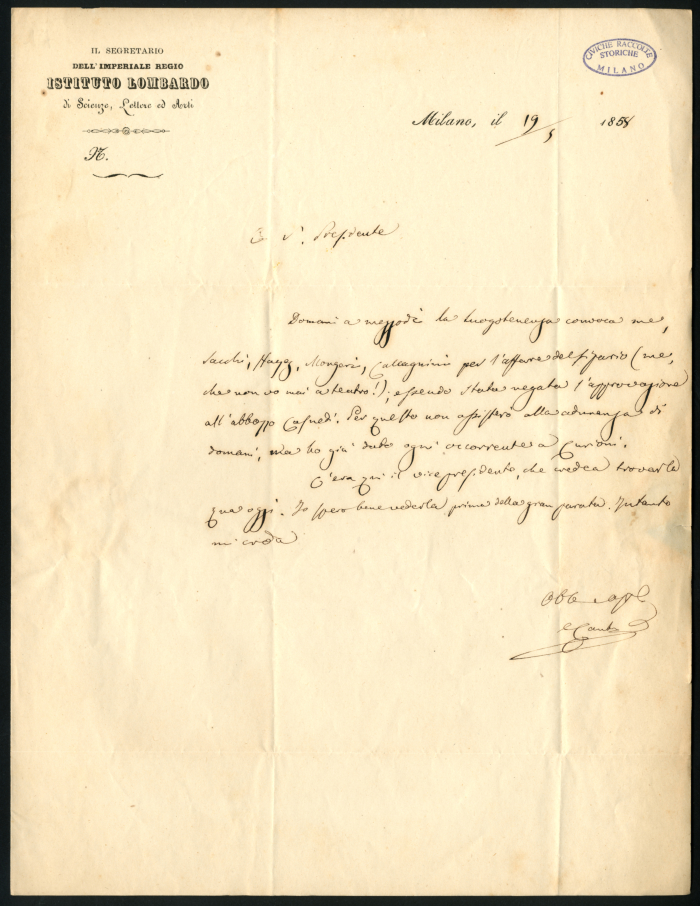 IL SEGRETARIO
DELL'IMPERIALE REGIO
ISTITUTO LOMBARDO
di Scienze, Lettere ed Arti
N.
CIVICHE RACCOLTE
STORICHE
MILANO
Milano, il 19/5 1858
Sr. Presidente
Domani a mezzodì la Luogotenenza convoca me,
Sacchi, Hayez, Mongeri, Calcagnini per l'affare del sipario (me,
che non vo mai a teatro!); essendo stata negata l'approvazione
all'abbozzo Casnedi. Per questo non assisterò alla adunanza di
domani, ma ho già dato ogni occorrente a Curioni.
C'era qui il vicepresidente, che credea trovarla
qua oggi. Io spero bene vederla prima della gran parata. Intanto
mi creda
CCantù